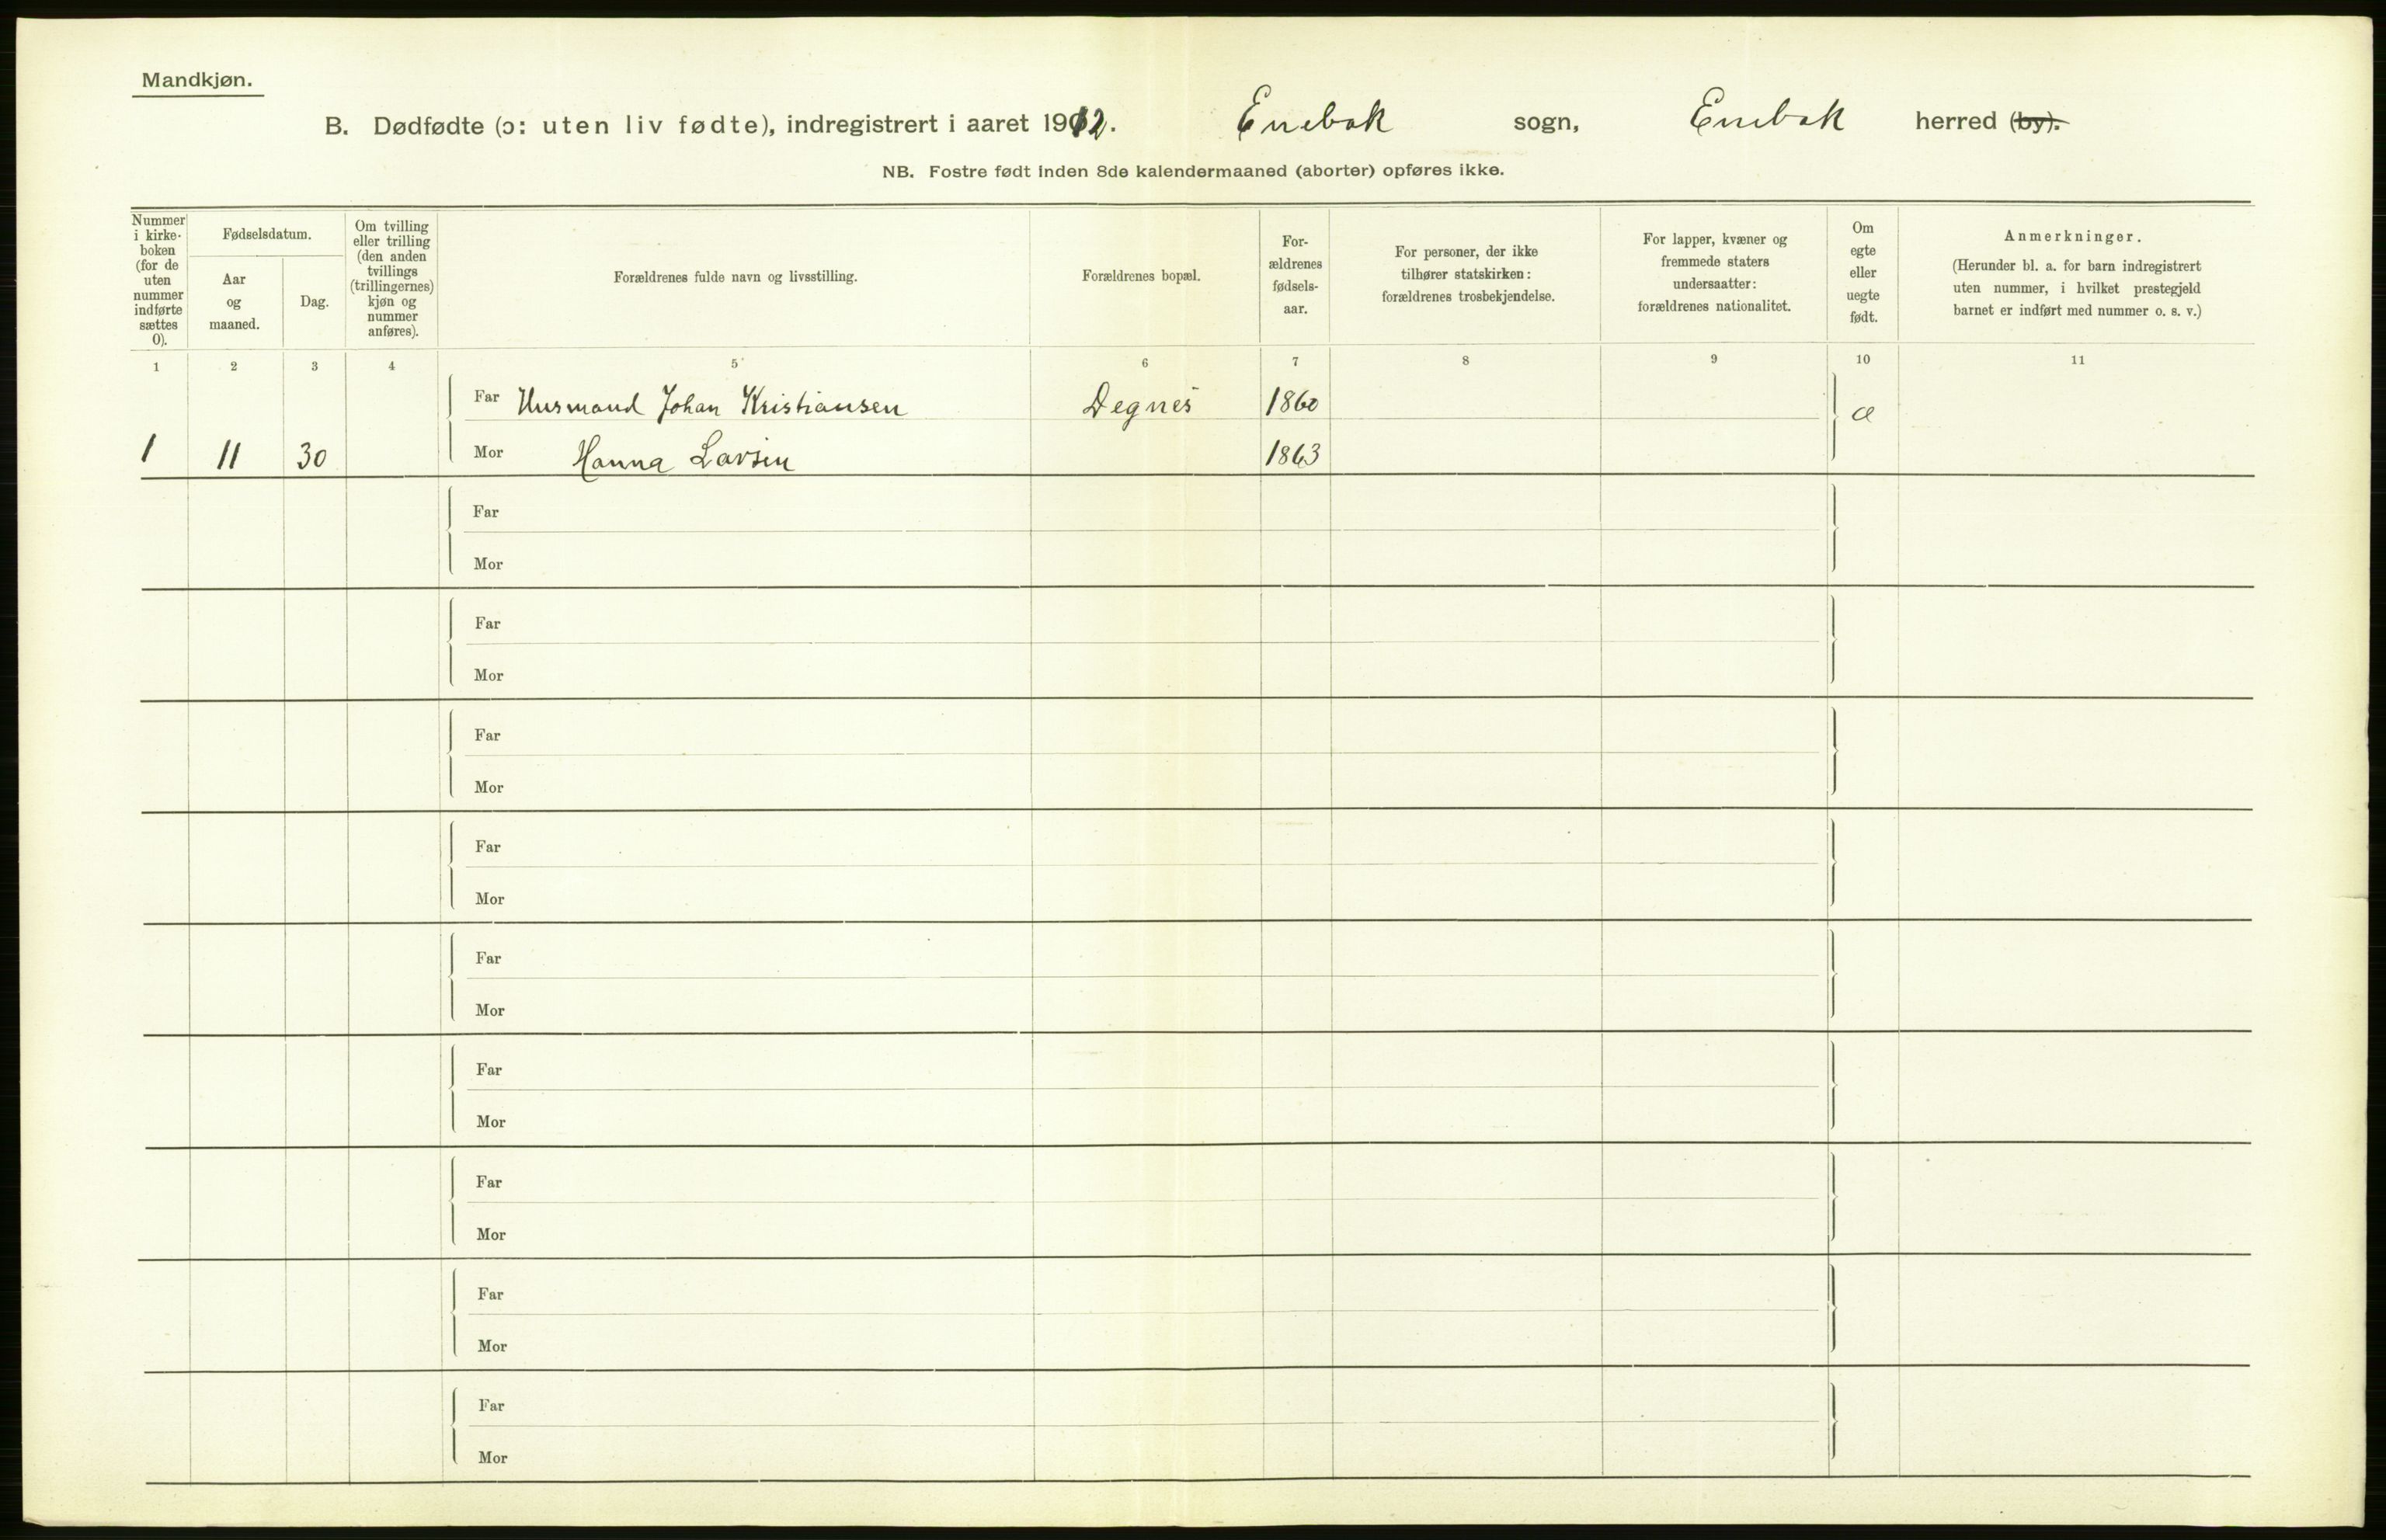 Mandkjøn.
B. Dødfødte (ɔ: uten liv fødte), indregistrert i aaret 1912. Enebak sogn, Enebak herred (by).
NB. Fostre født inden 8de kalendermaaned (aborter) opføres ikke.
Nummer
i kirke-
boken
(for de
uten
nummer
indførte
sættes
0).
Fødselsdatum.
Aar
og
maaned.
Dag.
Om tvilling
eller trilling
(den anden
tvillings
(trillingernes)
kjøn og
nummer
anføres).
Forældrenes fulde navn og livsstilling.
Forældrenes bopæl.
For-
ældrenes
fødsels-
aar.
For personer, der ikke
tilhører statskirken:
forældrenes trosbekjendelse.
For lapper, kvæner og
fremmede staters
undersaatter:
forældrenes nationalitet.
Om
egte
eller
uegte
født.
Anmerkninger.
(Herunder bl. a. for barn indregistrert
uten nummer, i hvilket prestegjeld
barnet er indført med nummer o. s. v.)
1 2 3 4 5 6 7 8 9 10 11
Far Husmand Johan Kristiansen Degnes 1860
1 11 30 Mor Hanna Larsen 1863
Far
Mor
Far
Mor
Far
Mor
Far
Mor
Far
Mor
Far
Mor
Far
Mor
Far
Mor
Far
Mor